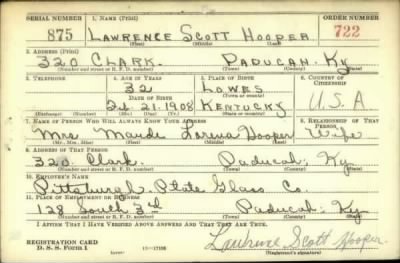 SERIAL NUMBER 1. NAME (Print) ORDER NUMBER
875 LAWRENCE SCOTT HOOPER 722
(First) (Middle) (Last)
2. ADDRESS (Print)
320 CLARK. PADUCAH, Ky
(Number and street or R. F. D. number) (Town) (County) (State)
3. TELEPHONE 4. AGE IN YEARS 5. PLACE OF BIRTH 6. COUNTRY OF CITIZENSHIP
32 LOWES
DATE OF BIRTH (Town or county)
21 1908 KENTUCKY U.S.A
(Exchange) (Number) (Mo.) (Day) (Yr.) (State or country)
7. NAME OF PERSON WHO WILL ALWAYS KNOW YOUR ADDRESS 8. RELATIONSHIP OF THAT PERSON
Mrs Maude Lorena Hooper Wife
(Mr., Mrs., Miss) (First) (Middle) (Last)
9. ADDRESS OF THAT PERSON
320 Clark. Paducah, Ky
(Number and street or R. F. D. number) (Town) (County) (State)
10. EMPLOYER'S NAME
Pittsburgh Plate Glass Co.
11. PLACE OF EMPLOYMENT OR BUSINESS
128 South 3rd Paducah, Ky
(Number and street or R. F. D. number) (Town) (County) (State)
I AFFIRM THAT I HAVE VERIFIED ABOVE ANSWERS AND THAT THEY ARE TRUE.
REGISTRATION CARD
D. S. S. Form 1
Lawrence Scott Hooper
(Registrant's signature)